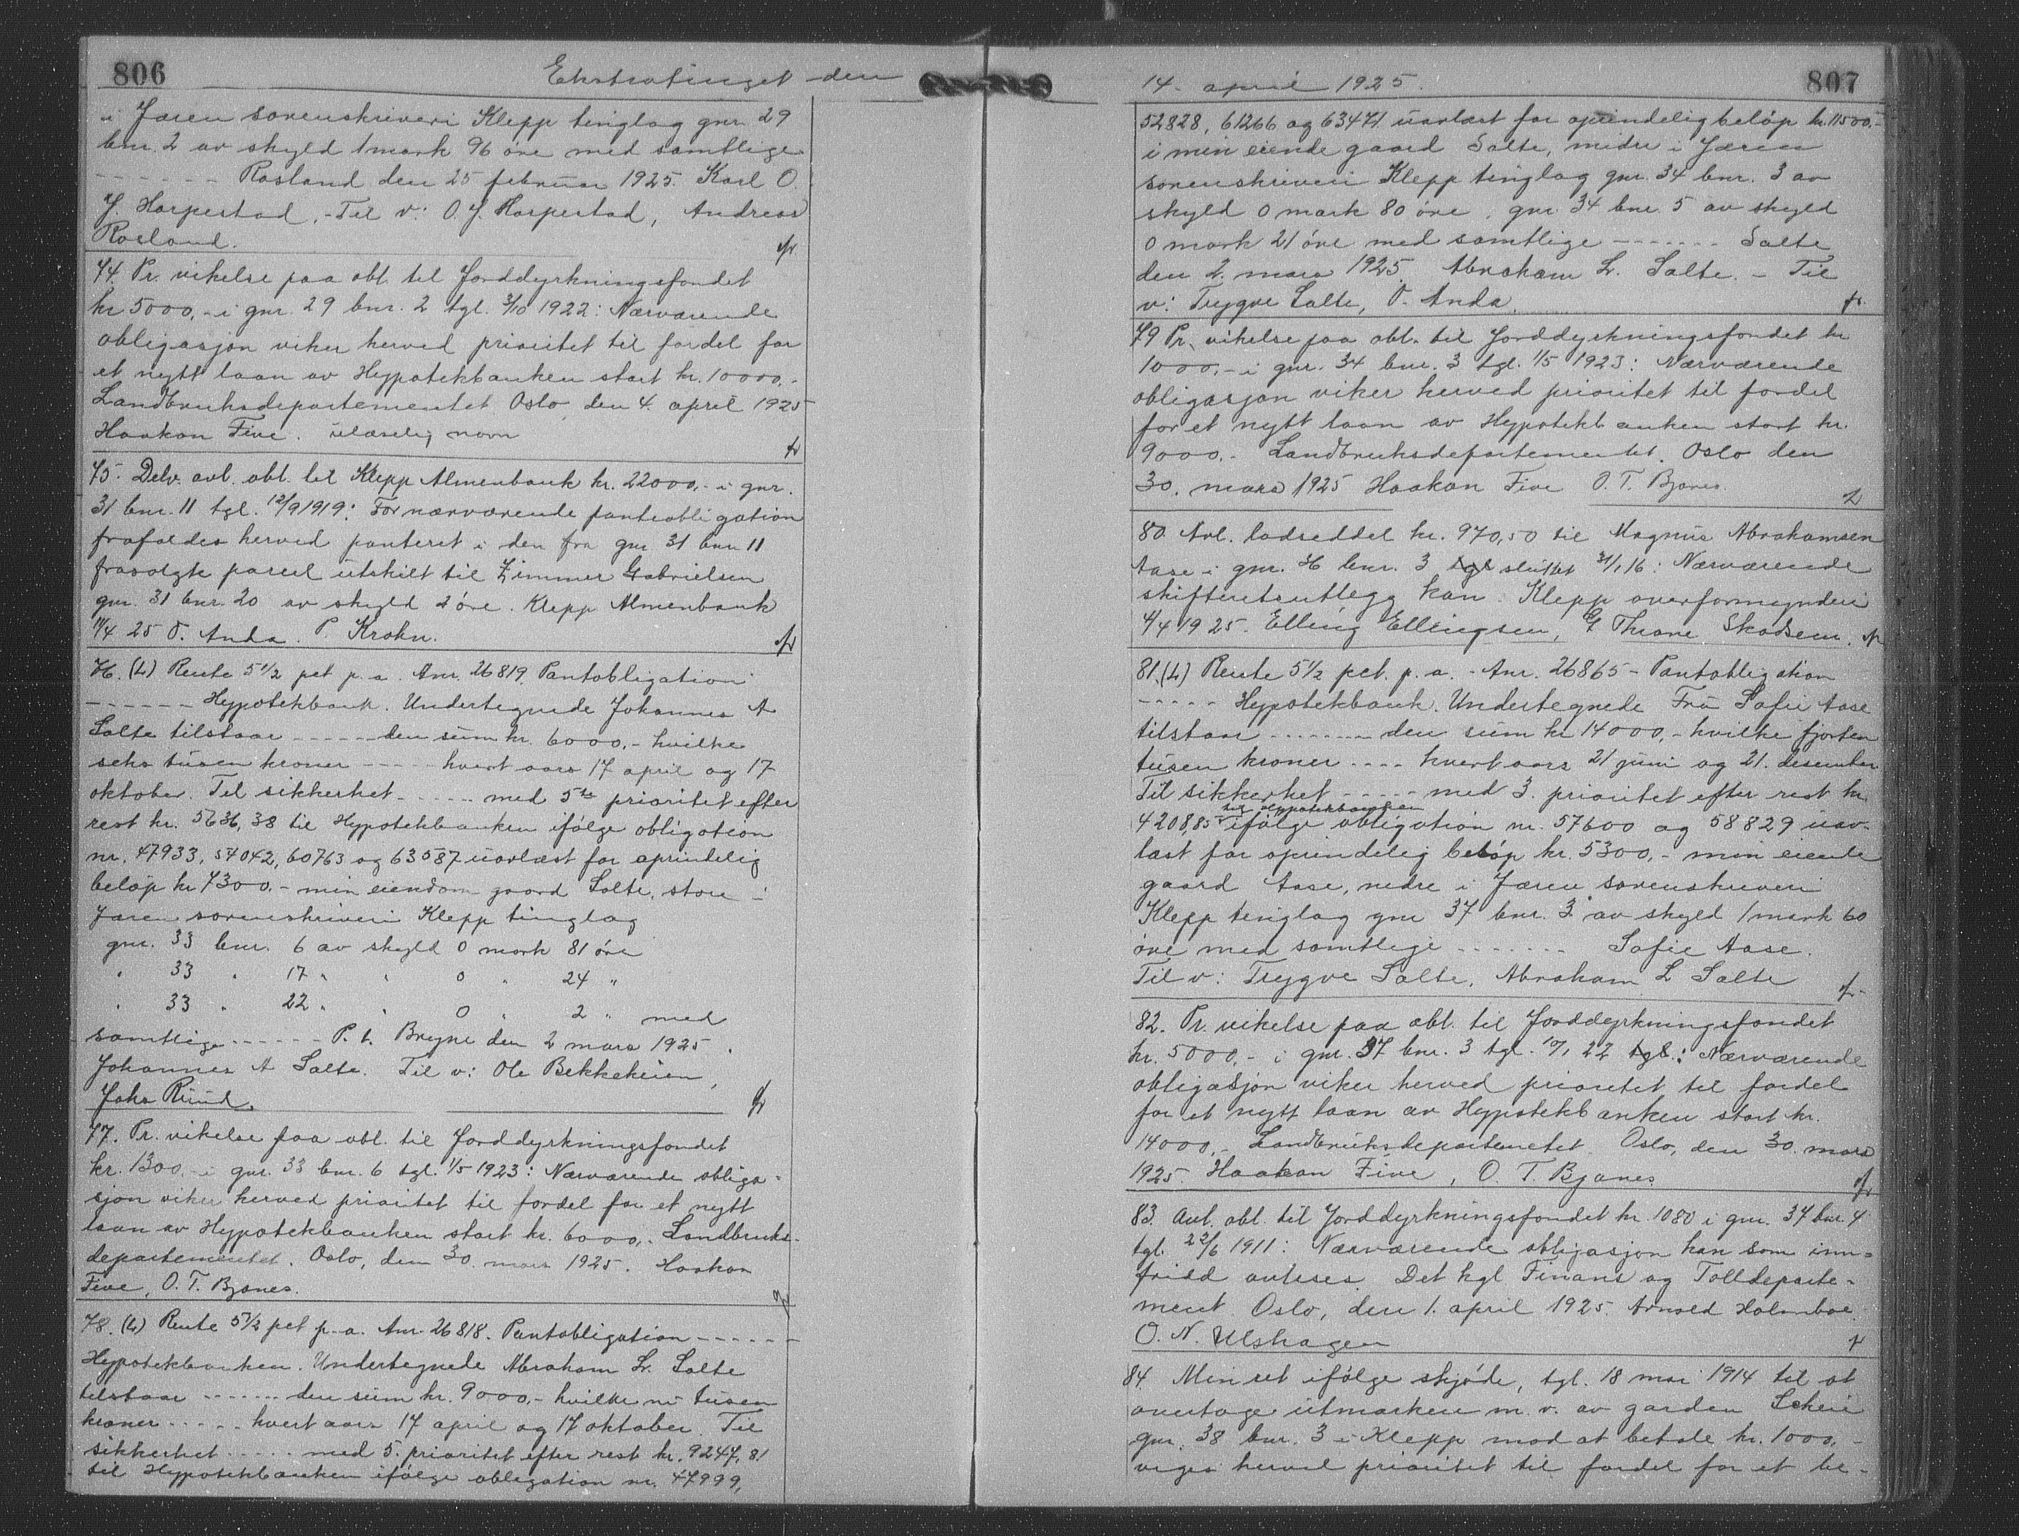 806
Ekstratinget den
i Jæren sorenskriveri Klepp tinglag gnr. 29
bnr. 2 av skyld 1 mark 96 øre med samtlige
- - - - - - Rosland den 25 februar 1925. Karl O.
J. Horpestad. - Til v: O. J. Horpestad, Andreas
Rosland.
74. Pr. vikelse paa obl. til Jorddyrkningsfondet
kr 5000,- i gnr. 29 bnr. 2 tgl. 3/10 1922: Nærværende
obligasjon viker herved prioritet til fordel for
et nytt laan av Hypotekbanken stort kr. 10000,-
Landbruksdepartementet Oslo, den 4. april 1925
Haakon Five. ulæselig navn
75. Delv. avl. obl. til Klepp Almenbank kr. 22000,- i gnr.
31 bnr. 11 tgl. 12/9 1919: For nærværende panteobligation
frafaldes herved panteret i den fra gnr 31 bnr 11
frasolgte parcel utskilt til Zimmer Gabrielsen
gnr. 31 bnr. 20 av skyld 2 øre. Klepp Almenbank
11/4 25 O. Anda. P. Krohn.
76. (L) Rente 5 1/2 pct p. a. Anr. 26819. Pantobligation
- - - - - - Hypotekbank. Undertegnede Johannes A
Salte tilstaar - - - - - den sum kr. 6000,- hvilke
seks tusen kroner - - - - hvert aars 17 april og 17
oktober. Til sikkerhet - - - - - med 5te prioritet efter
rest kr. 5636,38 til Hypotekbanken ifölge obligation
nr. 47933, 54042, 60763 og 63587 uavlæst for oprindelig
beløp kr 7300,- min eiendom gaard Salte, store i
Jæren sorenskriveri Klepp tinglag
gnr. 33 bnr. 6 av skyld 0 mark 81 øre
" 33 " 17 " " 0 " 24 "
" 33 " 22 " " 0 " 2 " med
samtlige - - - - - - P. t. Bryne den 2 mars 1925.
Johannes A Salte. Til v: Ole Bekkeheien,
Johs Ruud.
77. Pr. vikelse paa obl. til Jorddyrkningsfondet
kr. 1300,- i gnr. 33 bnr. 6 tgl. 1/5 1923: Nærværende obliga-
sjon viker herved prioritet til fordel for et nytt
laan av Hypotekbanken stort kr. 6000,- Landbruks-
departementet. Oslo, den 30. mars 1925. Haakon
Five, O. T. Bjanes.
78. (L) Rente 5 1/2 pct p. a. Anr. 26818. Pantobligation - - - - - -
Hypotekbanken. Undertegnede Abraham Lr. Salte
tilstaar - - - - - - den sum kr. 9000,- hvilke ni tusen
kroner - - - - - hvert aars 17 april og 17 oktober. Til
sikkerhet - - - - - med 5. prioritet efter rest kr. 9247,81
til Hypotekbanken ifølge obligation nr. 47999,
14. april 1925.
807
52828, 61266 og 63471 uavlæst for oprindelig beløp kr. 11500,-
i min eiende gaard Salte, midre i Jæren
sorenskriveri Klepp tinglag gnr. 34 bnr. 3 av
skyld 0 mark 80 øre, gnr. 34 bnr. 5 av skyld
0 mark 21 øre med samtlige - - - - - - Salte
den 2. mars 1925. Abraham Lr. Salte. - Til
v: Trygve Salte, O. Anda.
79 Pr. vikelse paa obl. til Jorddyrkningsfondet kr
1000,- i gnr. 34 bnr. 3 tgl. 1/5 1923: Nærværende
obligasjon viker herved prioritet til fordel
for et nytt laan av Hypotekbanken stort kr.
9000.- Landbruksdepartementet. Oslo den
30. mars 1925 Haakon Five O. T. Bjanes.
80 Avl. lodseddel kr. 970,50 til Magnus Abrahamsen
Aase i gnr. bnr. 3 tgl sluttet 31/1 16: Nærværende
skifteretsutlegg kan Klepp overformynderi
4/4 1925. Elling Ellingsen, G Thrane Skadsem.
81. (L) Rente 5 1/2 pct. p. a. - Anr. 26865 - Pantobligation
- - - - - Hypotekbank. Undertegnede Fru Sofie Aase
tilstaar - - - - - - - den sum kr 14000,- hvilke fjorten
tusen kroner - - - - hvert aars 21 juni og 21. desember.
Til sikkerhet - - - - - med 3. prioritet efter rest kr.
til Hypotekbanken
4208,85 ifølge obligation nr. 57600 og 58829 uav-
læst for oprindelig beløp kr. 5300,- min eiende
gaard Aase, nedre i Jæren sorenskriveri
Klepp tinglag gnr 37 bnr. 3 av skyld 1 mark 60
øre med samtlige - - - - - - - Sofie Aase.
Til v: Trygve Salte, Abraham L Salte
82. Pr. vikelse paa obl. til Jorddyrkningsfondet
kr. 5000,- i gnr. 37 bnr. 3 tgl. 10/1 22 tgl.: Nærværende
obligasjon viker herved prioritet til fordel
for et nytt laan av Hypotekbanken stort kr.
14000,- Landbruksdepartementet Oslo, den 30. mars
1925. Haakon Five, O. T. Bjanes
83. Avl. obl. til Jorddyrkningsfondet kr. 1080 i gnr. 37 bnr. 4
tgl. 22/6 1911: Nærværende obligasjon kan som inn-
fridd avleses. Det kgl Finans og Tolldeparte-
ment. Oslo, den 1. april 1925. Arnold Holmboe.
O. N. Ulshagen
84 Min ret ifölge skjöde, tgl. 18 mai 1914 til at
overtage utmarken m. v. av garden Scheie
gnr. 38 bnr. 3 i Klepp mod at betale kr. 1000,-
viges herved prioritet til fordel for et be-